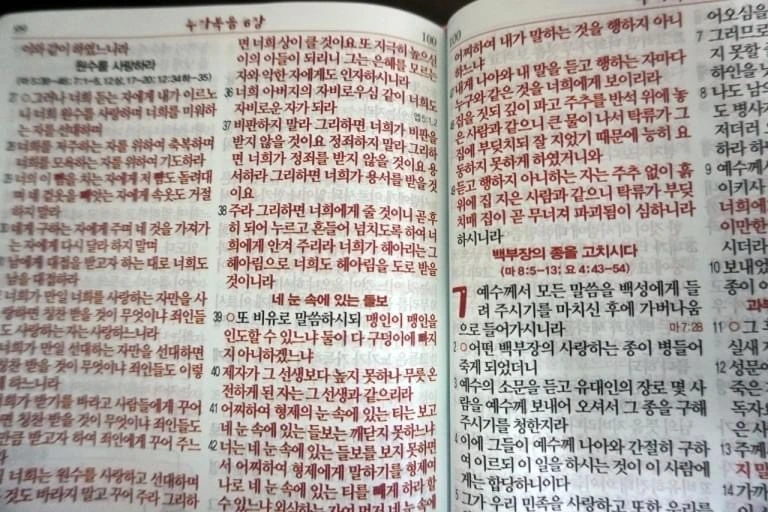 누가복음 6장
이와 같이 하였느니라
원수를 사랑하라
(마 5:38-48; 7:1-5, 12상, 17-20; 12:34하-35)
27 ○그러나 너희 듣는 자에게 내가 이르노
니 너희 원수를 사랑하며 너희를 미워하
는 자를 선대하며
28 너희를 저주하는 자를 위하여 축복하며
너희를 모욕하는 자를 위하여 기도하라
29 너의 이 뺨을 치는 자에게 저 뺨도 돌려대
며 네 겉옷을 빼앗는 자에게 속옷도 거절
하지 말라
네게 구하는 자에게 주며 네 것을 가져가
는 자에게 다시 달라 하지 말며
남에게 대접을 받고자 하는 대로 너희도
남을 대접하라
너희가 만일 너희를 사랑하는 자만을 사
랑하면 칭찬 받을 것이 무엇이냐 죄인들
도 사랑하는 자는 사랑하느니라
너희가 만일 선대하는 자만을 선대하면
칭찬 받을 것이 무엇이냐 죄인들도 이렇
게 하느니라
너희가 받기를 바라고 사람들에게 꾸어
주면 칭찬 받을 것이 무엇이냐 죄인들도
만큼 받고자 하여 죄인에게 꾸어 주느
라
너희는 원수를 사랑하고 선대하며
것도 바라지 말고 꾸어 주라 그리하
100
면 너희 상이 클 것이요 또 지극히 높으신
이의 아들이 되리니 그는 은혜를 모르는
자와 악한 자에게도 인자하시니라
36 너희 아버지의 자비로우심 같이 너희도
자비로운 자가 되라
엡 5:1, 2
37 비판하지 말라 그리하면 너희가 비판을
받지 않을 것이요 정죄하지 말라 그리하
면 너희가 정죄를 받지 않을 것이요 용
서하라 그리하면 너희가 용서를 받을 것
이요
38 주라 그리하면 너희에게 줄 것이니 곧 후
히 되어 누르고 흔들어 넘치도록 하여 너
희에게 안겨 주리라 너희가 헤아리는 그
헤아림으로 너희도 헤아림을 도로 받을
것이니라
네 눈 속에 있는 들보
39 ○또 비유로 말씀하시되 맹인이 맹인을
인도할 수 있느냐 둘이 다 구덩이에 빠지
지 아니하겠느냐
40 제자가 그 선생보다 높지 못하나 무릇 온
전하게 된 자는 그 선생과 같으리라
41 어찌하여 형제의 눈 속에 있는 티는 보고
네 눈 속에 있는 들보는 깨닫지 못하느냐
42 너는 네 눈 속에 있는 들보를 보지 못하면
서 어찌하여 형제에게 말하기를 형제여
나로 네 눈 속에 있는 티를 빼게 하라 할
수 있느냐 외식하는 자여 먼저 네 눈 속에
100
어찌하여 내가 말하는 것을 행하지 아니
하느냐
내게 나아와 내 말을 듣고 행하는 자마다
누구와 같은 것을 너희에게 보이리라
집을 짓되 깊이 파고 주추를 반석 위에 놓
은 사람과 같으니 큰 물이 나서 탁류가 그
집에 부딪치되 잘 지었기 때문에 능히 요
동하지 못하게 하였거니와
듣고 행하지 아니하는 자는 주추 없이 흙
위에 집 지은 사람과 같으니 탁류가 부딪
치매 집이 곧 무너져 파괴됨이 심하니라
하시니라
백부장의 종을 고치시다
(마 8:5-13; 요 4:43-54)
7 예수께서 모든 말씀을 백성에게 들
려 주시기를 마치신 후에 가버나움
으로 들어가시니라
마 7:28
2 ○어떤 백부장의 사랑하는 종이 병들어
죽게 되었더니
3 예수의 소문을 듣고 유대인의 장로 몇 사
람을 예수께 보내어 오셔서 그 종을 구해
주시기를 청한지라
4 이에 그들이 예수께 나아와 간절히 구하
여 이르되 이 일을 하시는 것이 이 사람에
게는 합당하니이다
5 그가 우리 민족을 사랑하고 또한 우리를
어오심을
7 그러므로
지 못할
하인을
8 나도 남의
도 병사가
저더러
하라 하
9 예수께서
이키사
너희에
이만한
시더라
10 보내었
종이
과부
11 ○그
실새
12 성문에
죽은
독자
은 사
13 주께
지 말
14 가까